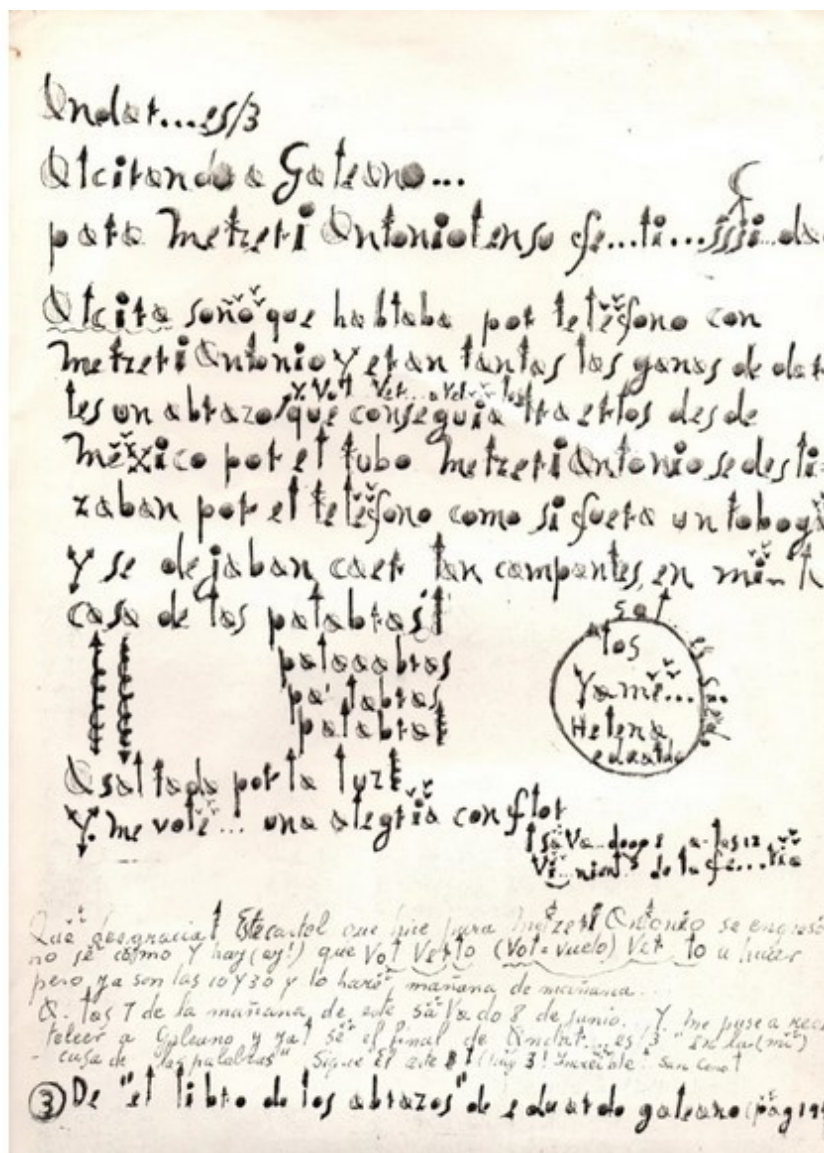 Andar...es/3
Alcitando a Galeano...
para Metzeri Antoniotenso fe...ti...issi..da
Alcita soñó que hablaba por teléfono con
Metzeri Antonio y eran tantas las ganas de dar
les un abrazo que conseguía traerlos desde
y. Vol Ver...
México por el tubo Metzeri Antonio se desli=
zaban por el teléfono como si fuera un tobogá
Y se dejaban caer tan campantes, en mi
casa de las palabras
palaoabras
pa' labras
palabras
Sal
a los
Ya mé...
Helena
eduardo
Asaltada por la luz
Y. me volé... una alegría con flor
sá Va..do a las 12
Vi..nient de la fe...ria
Qué desgracia! Este cartel que hice para Metzeri Antonio se engrosó
no sé cómo Y hay (ay!) que Vol Verlo (Vol=vuelo) Ver lo a hacer
pero ya son las 10 y 30 y lo haré, mañana de mañana...
A. las 7 de la mañana de este sá Va do 8 de junio. Y me puse a
releer a Galeano y ya! sé el final de Andar...es/3 "En la (mi)
- casa de las palabras" Sigue El este (hay 3! Increíble!
③ De "el libro de los abrazos" de eduardo galeano (pág 19